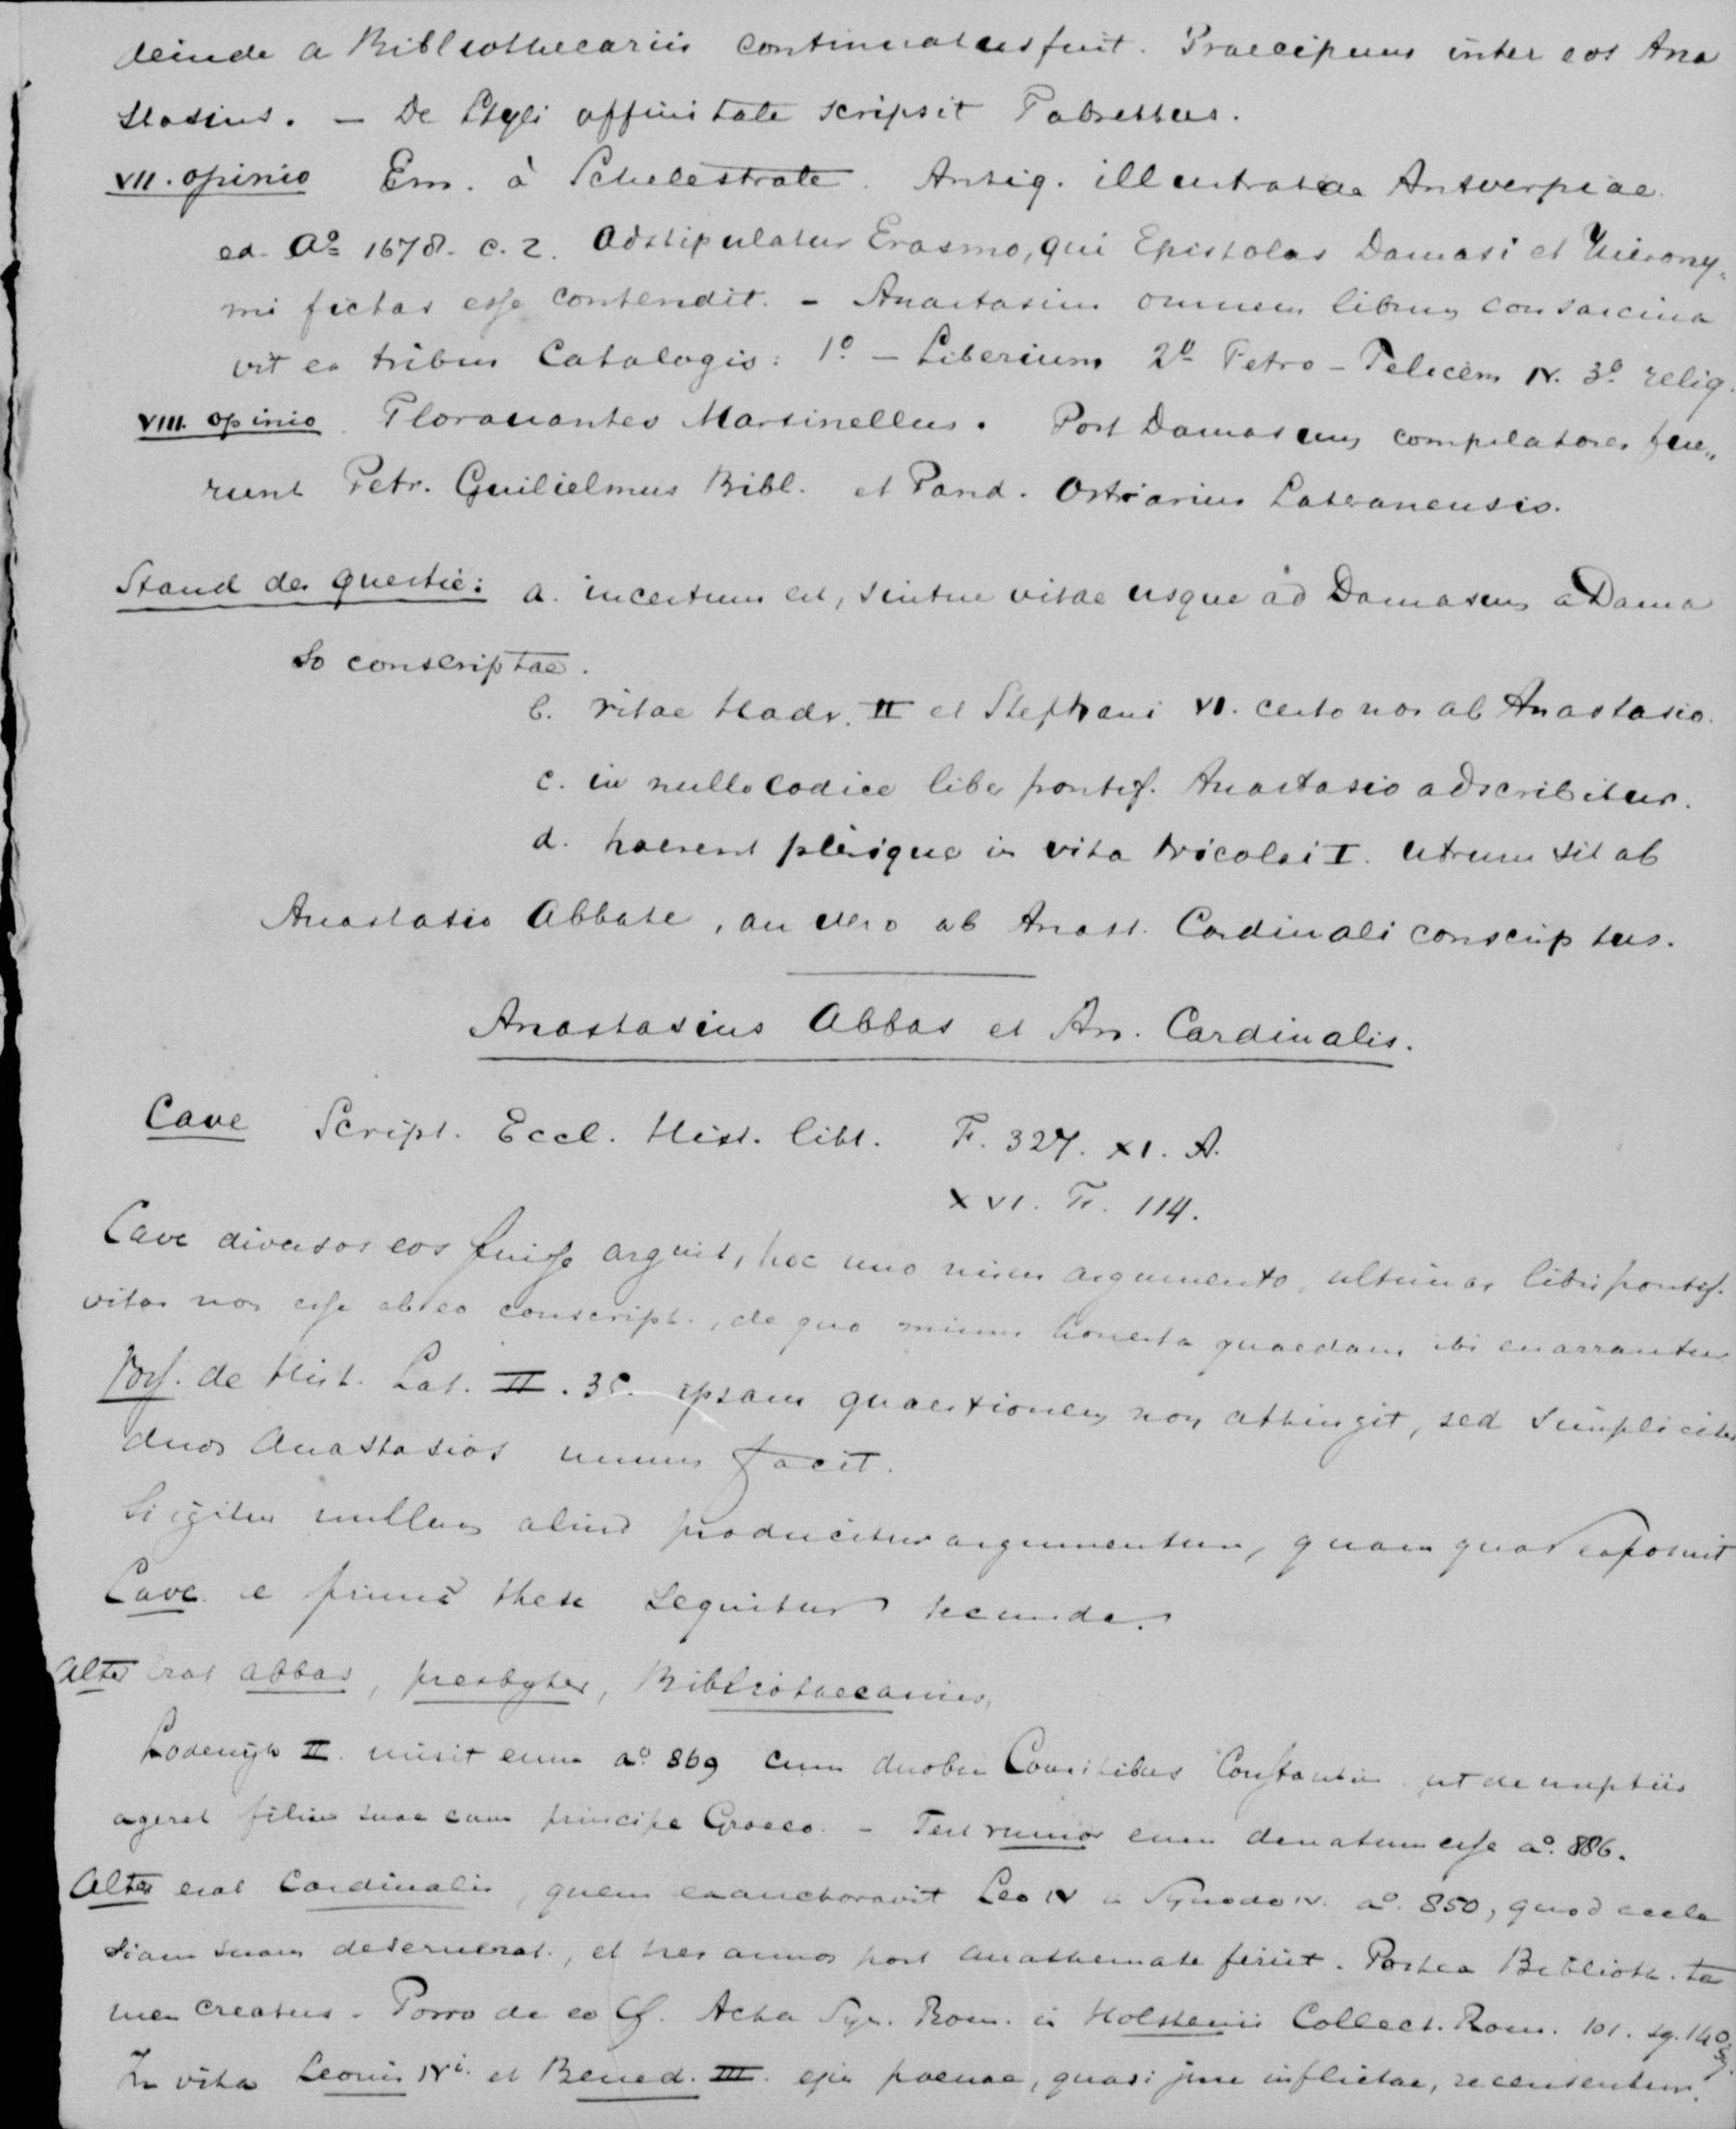 deinde a Bibliothecariis continuatus fuit. Praecipuus inter eos Ana
stasius. — De Styli affinitate scripsit Fabrettus.
VII. opinio Em. à Schelestrate. Antiq. illustratae Antverpiae.
ed. Aº 1678. c. 2. Adstipulatur Erasmo, qui Epistolas Damasi et Hierony„
mi fictas esse contendit. — Anastasium omnem librum consarcina
vit ex tribus Catalogis: 1º — Liberium 2º Petro-Felicem IV. 3º relig.
VIII. opinio. Floravantes Martinellus. Post Damasum compilatores fue„
runt Petr. Guilielmus Bibl. et Pand. Ostiarius Lateranensis.
Stand der questie: a. incertum est, sintne vitae usque ad Damasum a Dama
so conscriptae.
b. vitae Hadr. II et Stephani VI. certo non ab Anastasio.
c. in nullo codice liber pontif. Anastasio adscribitur.
d. haerent plerique in vita Nicolai I. utrum sit ab
Anastasio Abbate, an vero ab Anast. Cardinali conscriptus.
Anastasius Abbas et An. Cardinalis.
Cave Script. Eccl. Hist. litt. F. 327. XI. A.
XVI. Fr. 114.
Cave diversos eos fuisse arguit, hoc uno nisus argumento, ultimas libri pontif.
vitas non esse ab eo conscript., de quo minus honesta quaedam ibi enarrantur
Voss. de Hist. Lat. II. 35. ipsam quaestionem non attingit, sed simpliciter
duos Anastasios unum facit.
Si igitur nullum aliud producitur argumentum, quam quod exposuit
Cave e primâ these sequitur secunda.
Alter erat abbas, presbyter, Bibliothaecarius,
Lodewijk II. misit eum aº. 869 cum duobus Comitibus Constantin. ut de nuptiis
ageret filiae suae cum principe Graeco. — Fert rumor eum denatum esse aº. 886.
Alter erat Cardinalis, quem exauctoravit Leo IV in Synodo IV. aº. 850, quod eccle
siam suam deseruerat, et tres annos post anathemate feriit. Postea Biblioth. ta
men creatus. Porro de eo Cf. Acta Syn. Rom. in Holstenii Collect. Rom. 101. sg. 140 sq.
In vita Leonis IVi. et Bened. III. ejus poenae, quasi jure inflictae, recensentur.